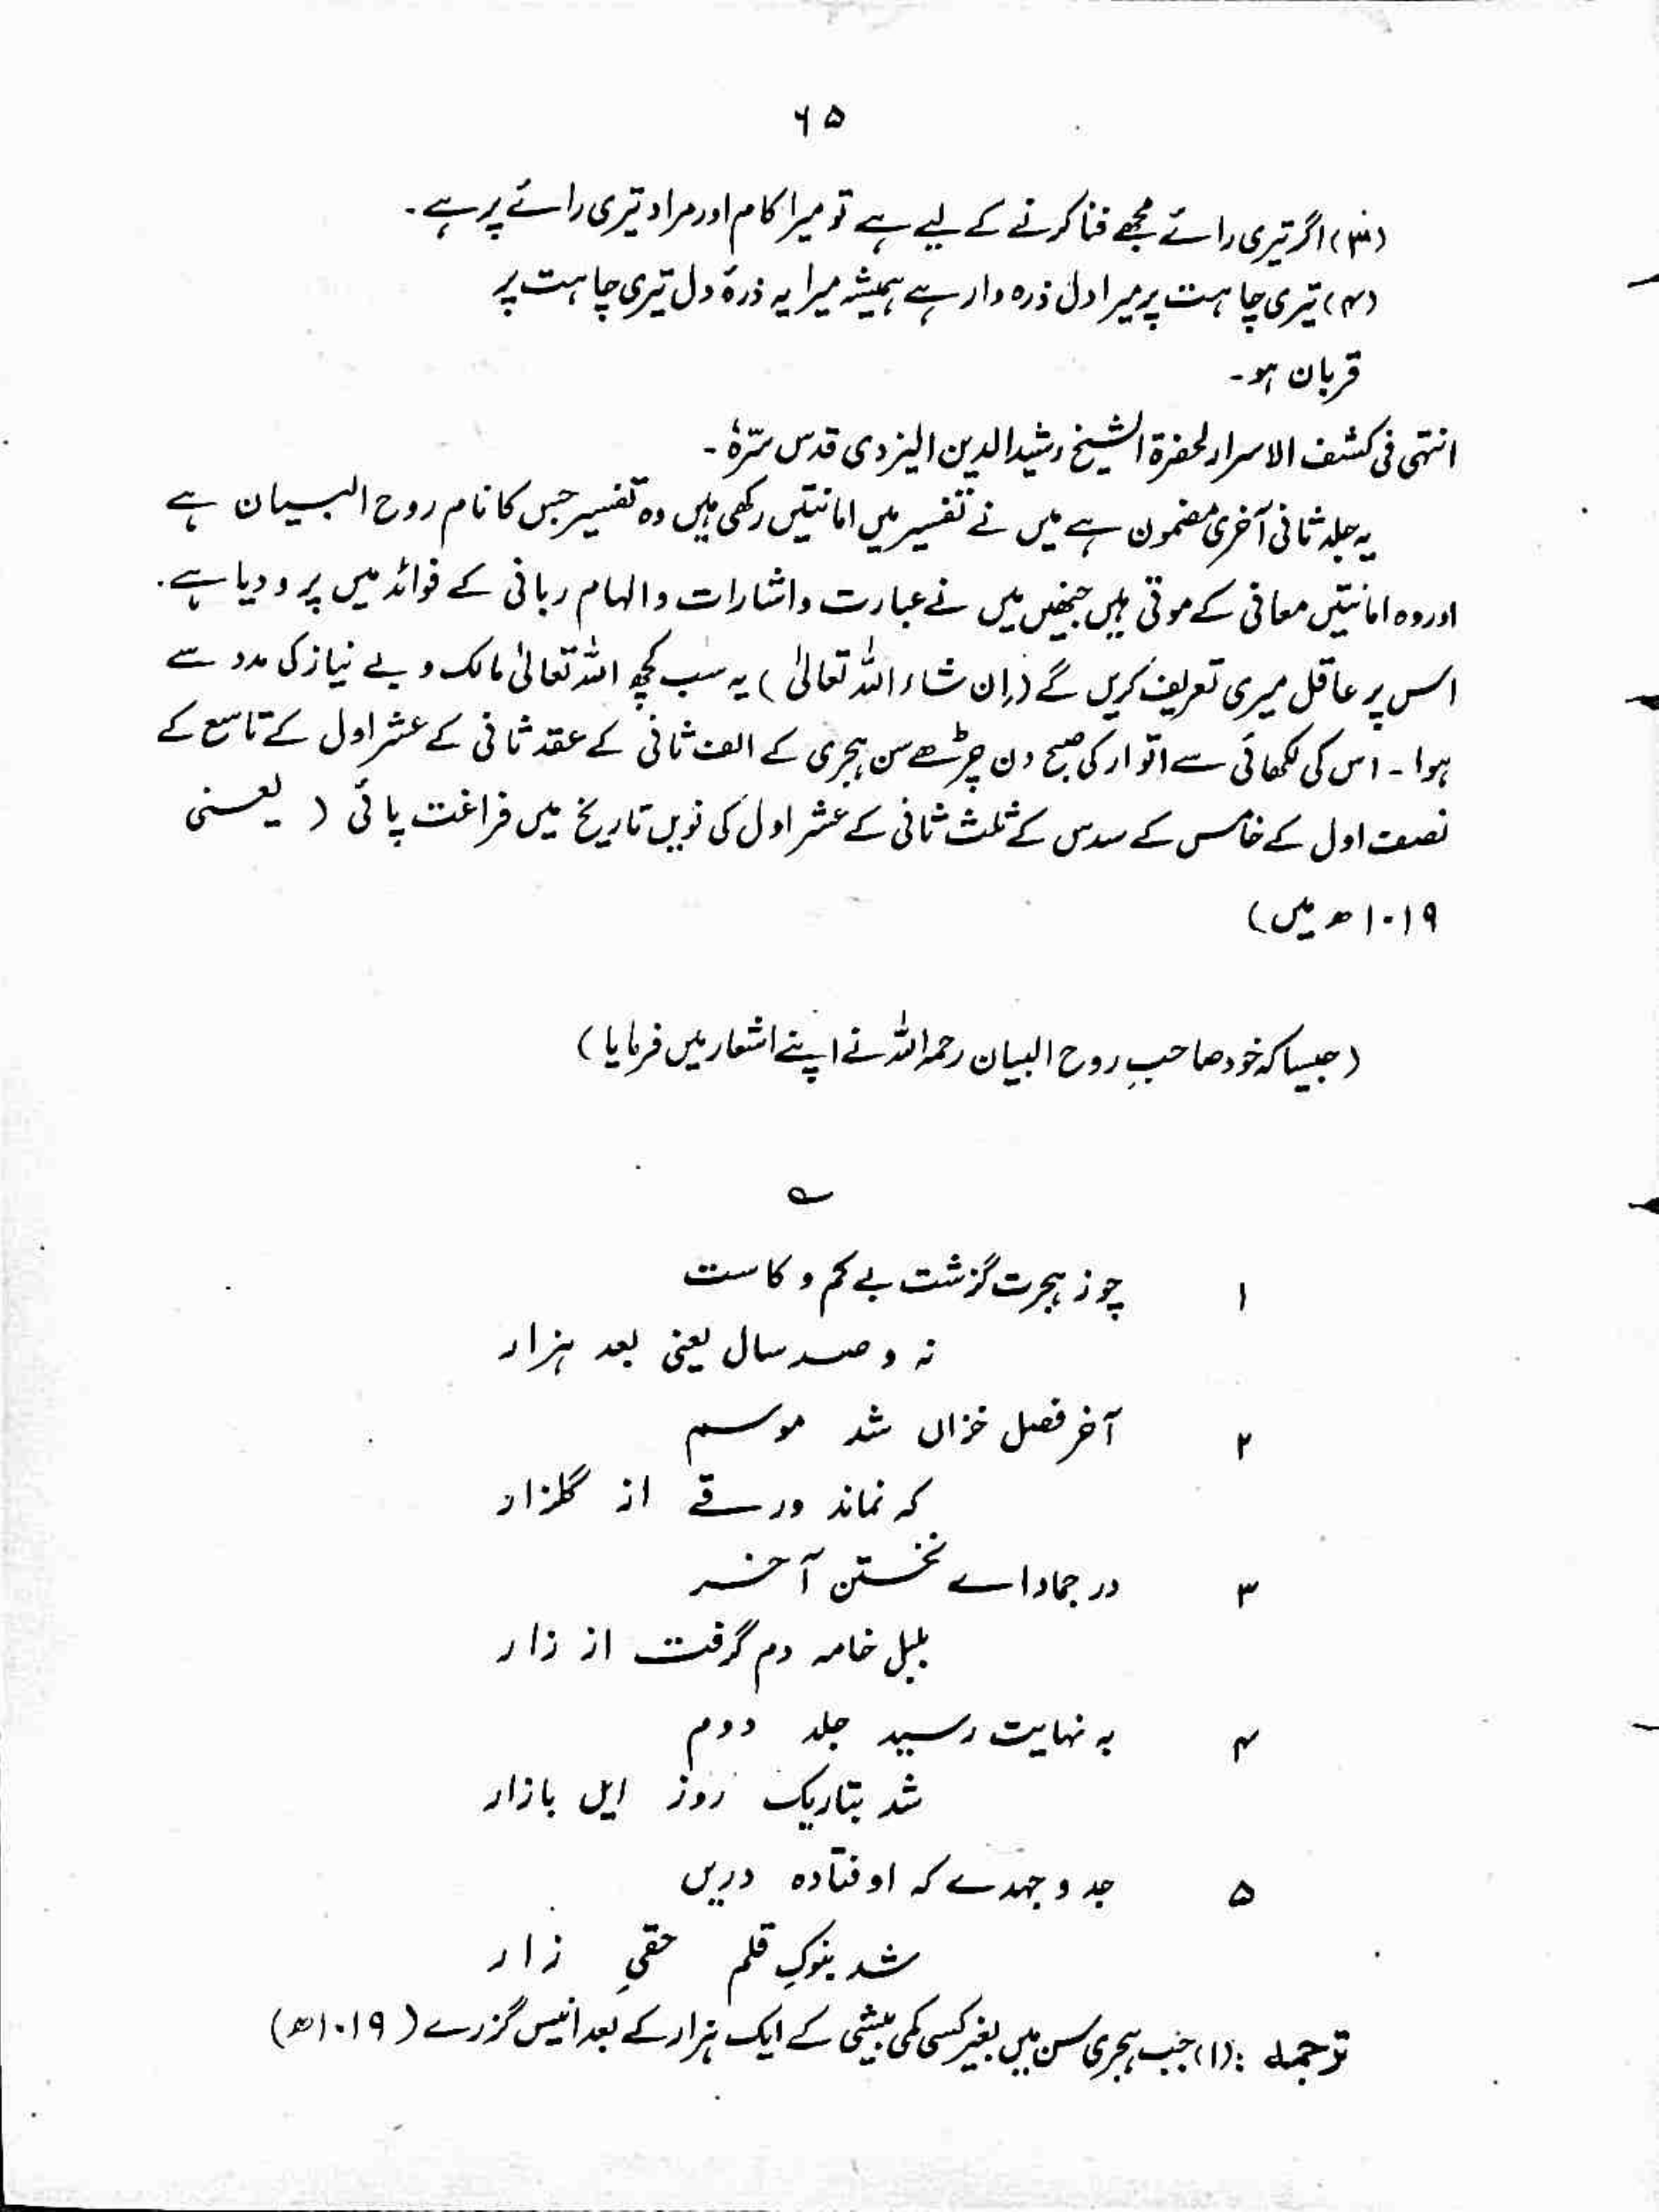 ۶۵
(۳) اگر تیری رائے مجھے فنا کرنے کے لیے ہے تو میرا کام اور مراد تیری رائے پر ہے۔
(۴) تیری چاہت پر میرا دل ذرہ وار ہے ہمیشہ میرا یہ ذرۂ دل تیری چاہت پر
قربان ہو۔
انتہی فی کشف الاسرار لحضرۃ الشیخ رشید الدین الیزدی قدس سرّہٗ۔
یہ جلد ثانی آخری مضمون ہے میں نے تفسیر میں امانتیں رکھی ہیں وہ تفسیر جس کا نام روح البیان ہے
اور وہ امانتیں معانی کے موتی ہیں جنھیں میں نے عبارت و اشارات و الہام ربانی کے فوائد میں پرو دیا ہے۔
اس پر عاقل میری تعریف کریں گے (ان شاء اللہ تعالیٰ) یہ سب کچھ اللہ تعالیٰ مالک و بے نیاز کی مدد سے
ہوا۔ اس کی لکھائی سے اتوار کی صبح دن چڑھے سن ہجری کے الف ثانی کے عقد ثانی کے عشر اول کے تاسع کے
نصف اول کے خامس کے سدس کے ثلث ثانی کے عشر اول کی نویں تاریخ میں فراغت پائی ( یعنی
۱۰۱۹ھ میں)
(جیسا کہ خود صاحبِ روح البیان رحمہ اللہ نے اپنے اشعار میں فرمایا)
؎
۱ چو ز ہجرت گزشت بے کم و کاست
نہ و صد سال یعنی بعد ہزار
۲ آخر فصل خزاں شد موسم
کہ نماند ورقے از گلزار
۳ در جماداے نخستن آخر
بلبل خامہ دم گرفت از زار
۴ بہ نہایت رسید جلد دوم
شد بتاریک روز ایں بازار
۵ جد و جہدے کہ اوفتادہ دریں
شد بنوکِ قلم حقیِ زار
ترجمہ :(۱) جب ہجری سن میں بغیر کسی کمی بیشی کے ایک ہزار کے بعد انیس گزرے (۱۰۱۹ھ)